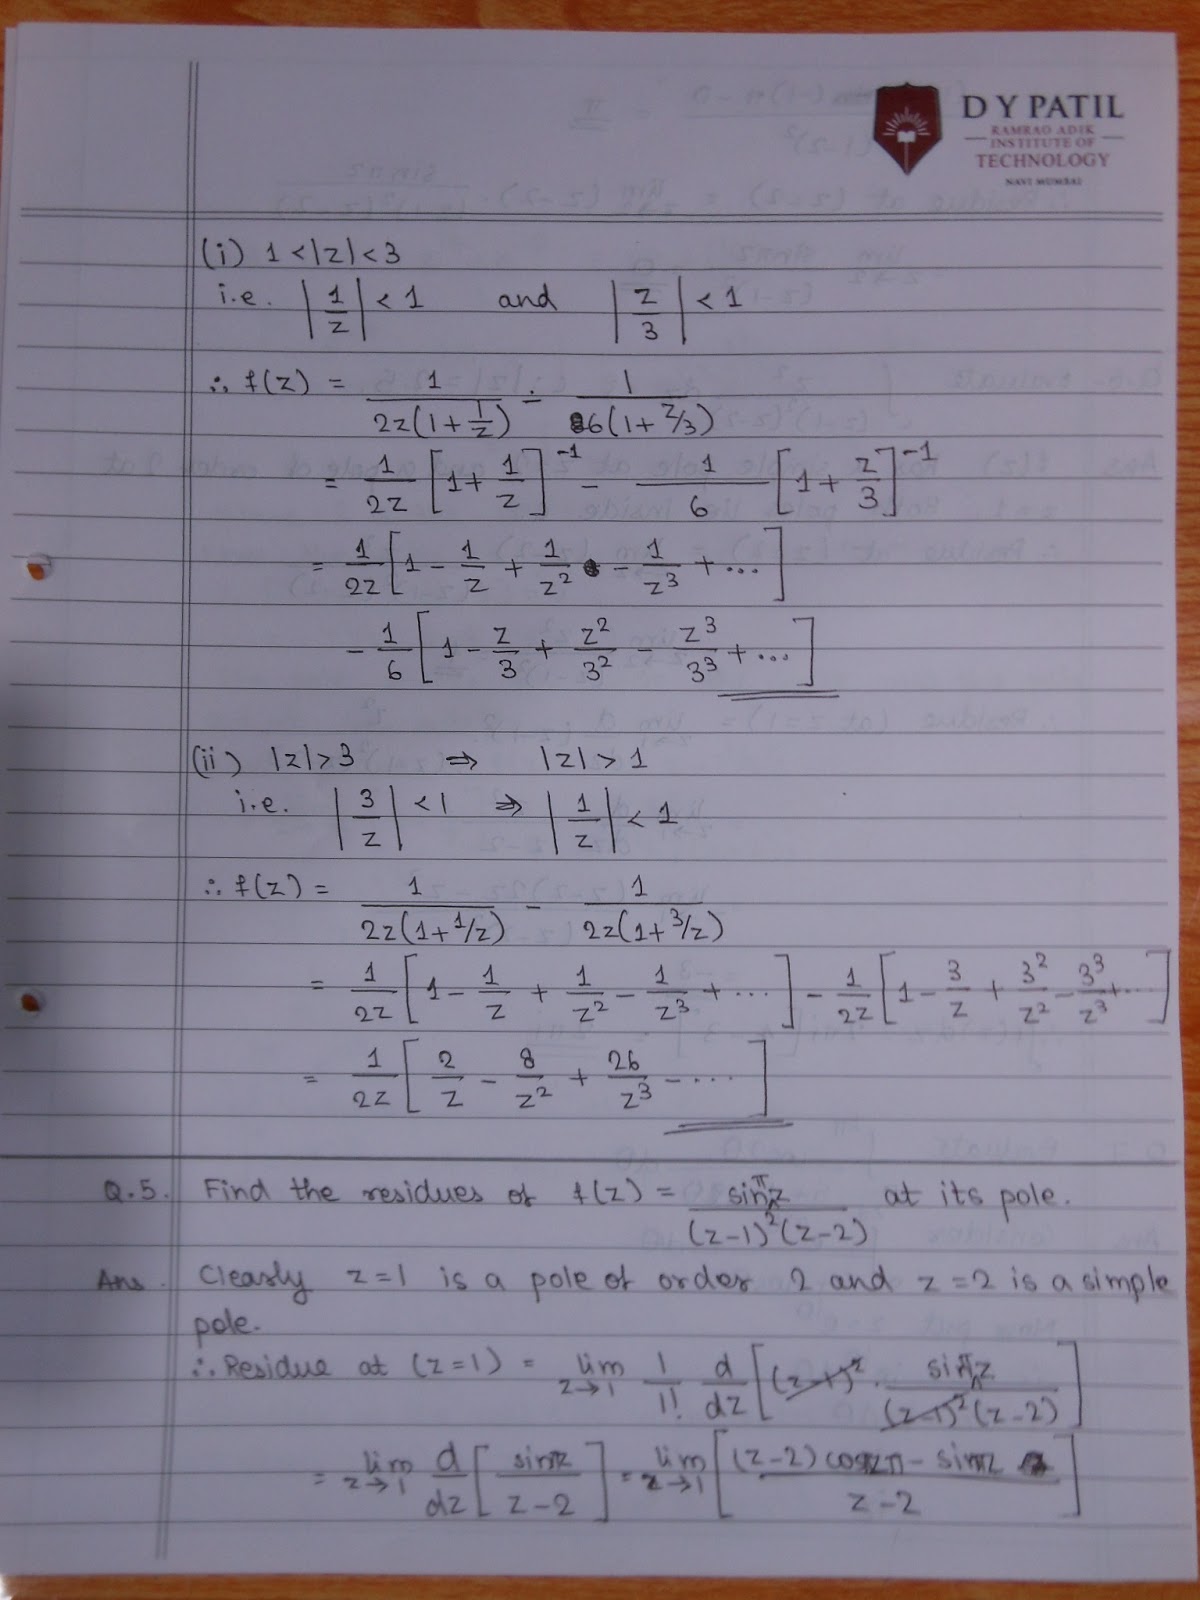 D Y PATIL
RAMRAO ADIK
INSTITUTE OF
TECHNOLOGY
NAVI MUMBAI
(i) 1 < |z| < 3
i.e. |1/z| < 1 and |z/3| < 1
∴ f(z) = 1/(2z(1 + 1/z)) - 1/(6(1 + z/3))
= 1/2z [1 + 1/z]^-1 - 1/6 [1 + z/3]^-1
= 1/2z [1 - 1/z + 1/z^2 - 1/z^3 + ...]
- 1/6 [1 - z/3 + z^2/3^2 - z^3/3^3 + ...]
(ii) |z| > 3 ⇒ |z| > 1
i.e. |3/z| < 1 ⇒ |1/z| < 1
∴ f(z) = 1/(2z(1 + 1/z)) - 1/(2z(1 + 3/z))
= 1/2z [1 - 1/z + 1/z^2 - 1/z^3 + ...] - 1/2z [1 - 3/z + 3^2/z^2 - 3^3/z^3 + ...]
= 1/2z [2/z - 8/z^2 + 26/z^3 - ....]
Q.5. Find the residues of f(z) = sinπz/((z-1)^2(z-2)) at its pole.
Ans. Clearly z=1 is a pole of order 2 and z=2 is a simple
pole.
∴ Residue at (z=1) = lim z→1 1/1! d/dz [(z-1)^2 . sinπz/((z-1)^2(z-2))]
= lim z→1 d/dz [sinπz/(z-2)] = lim z→1 [((z-2) coszπ - sinπz)/(z-2)]